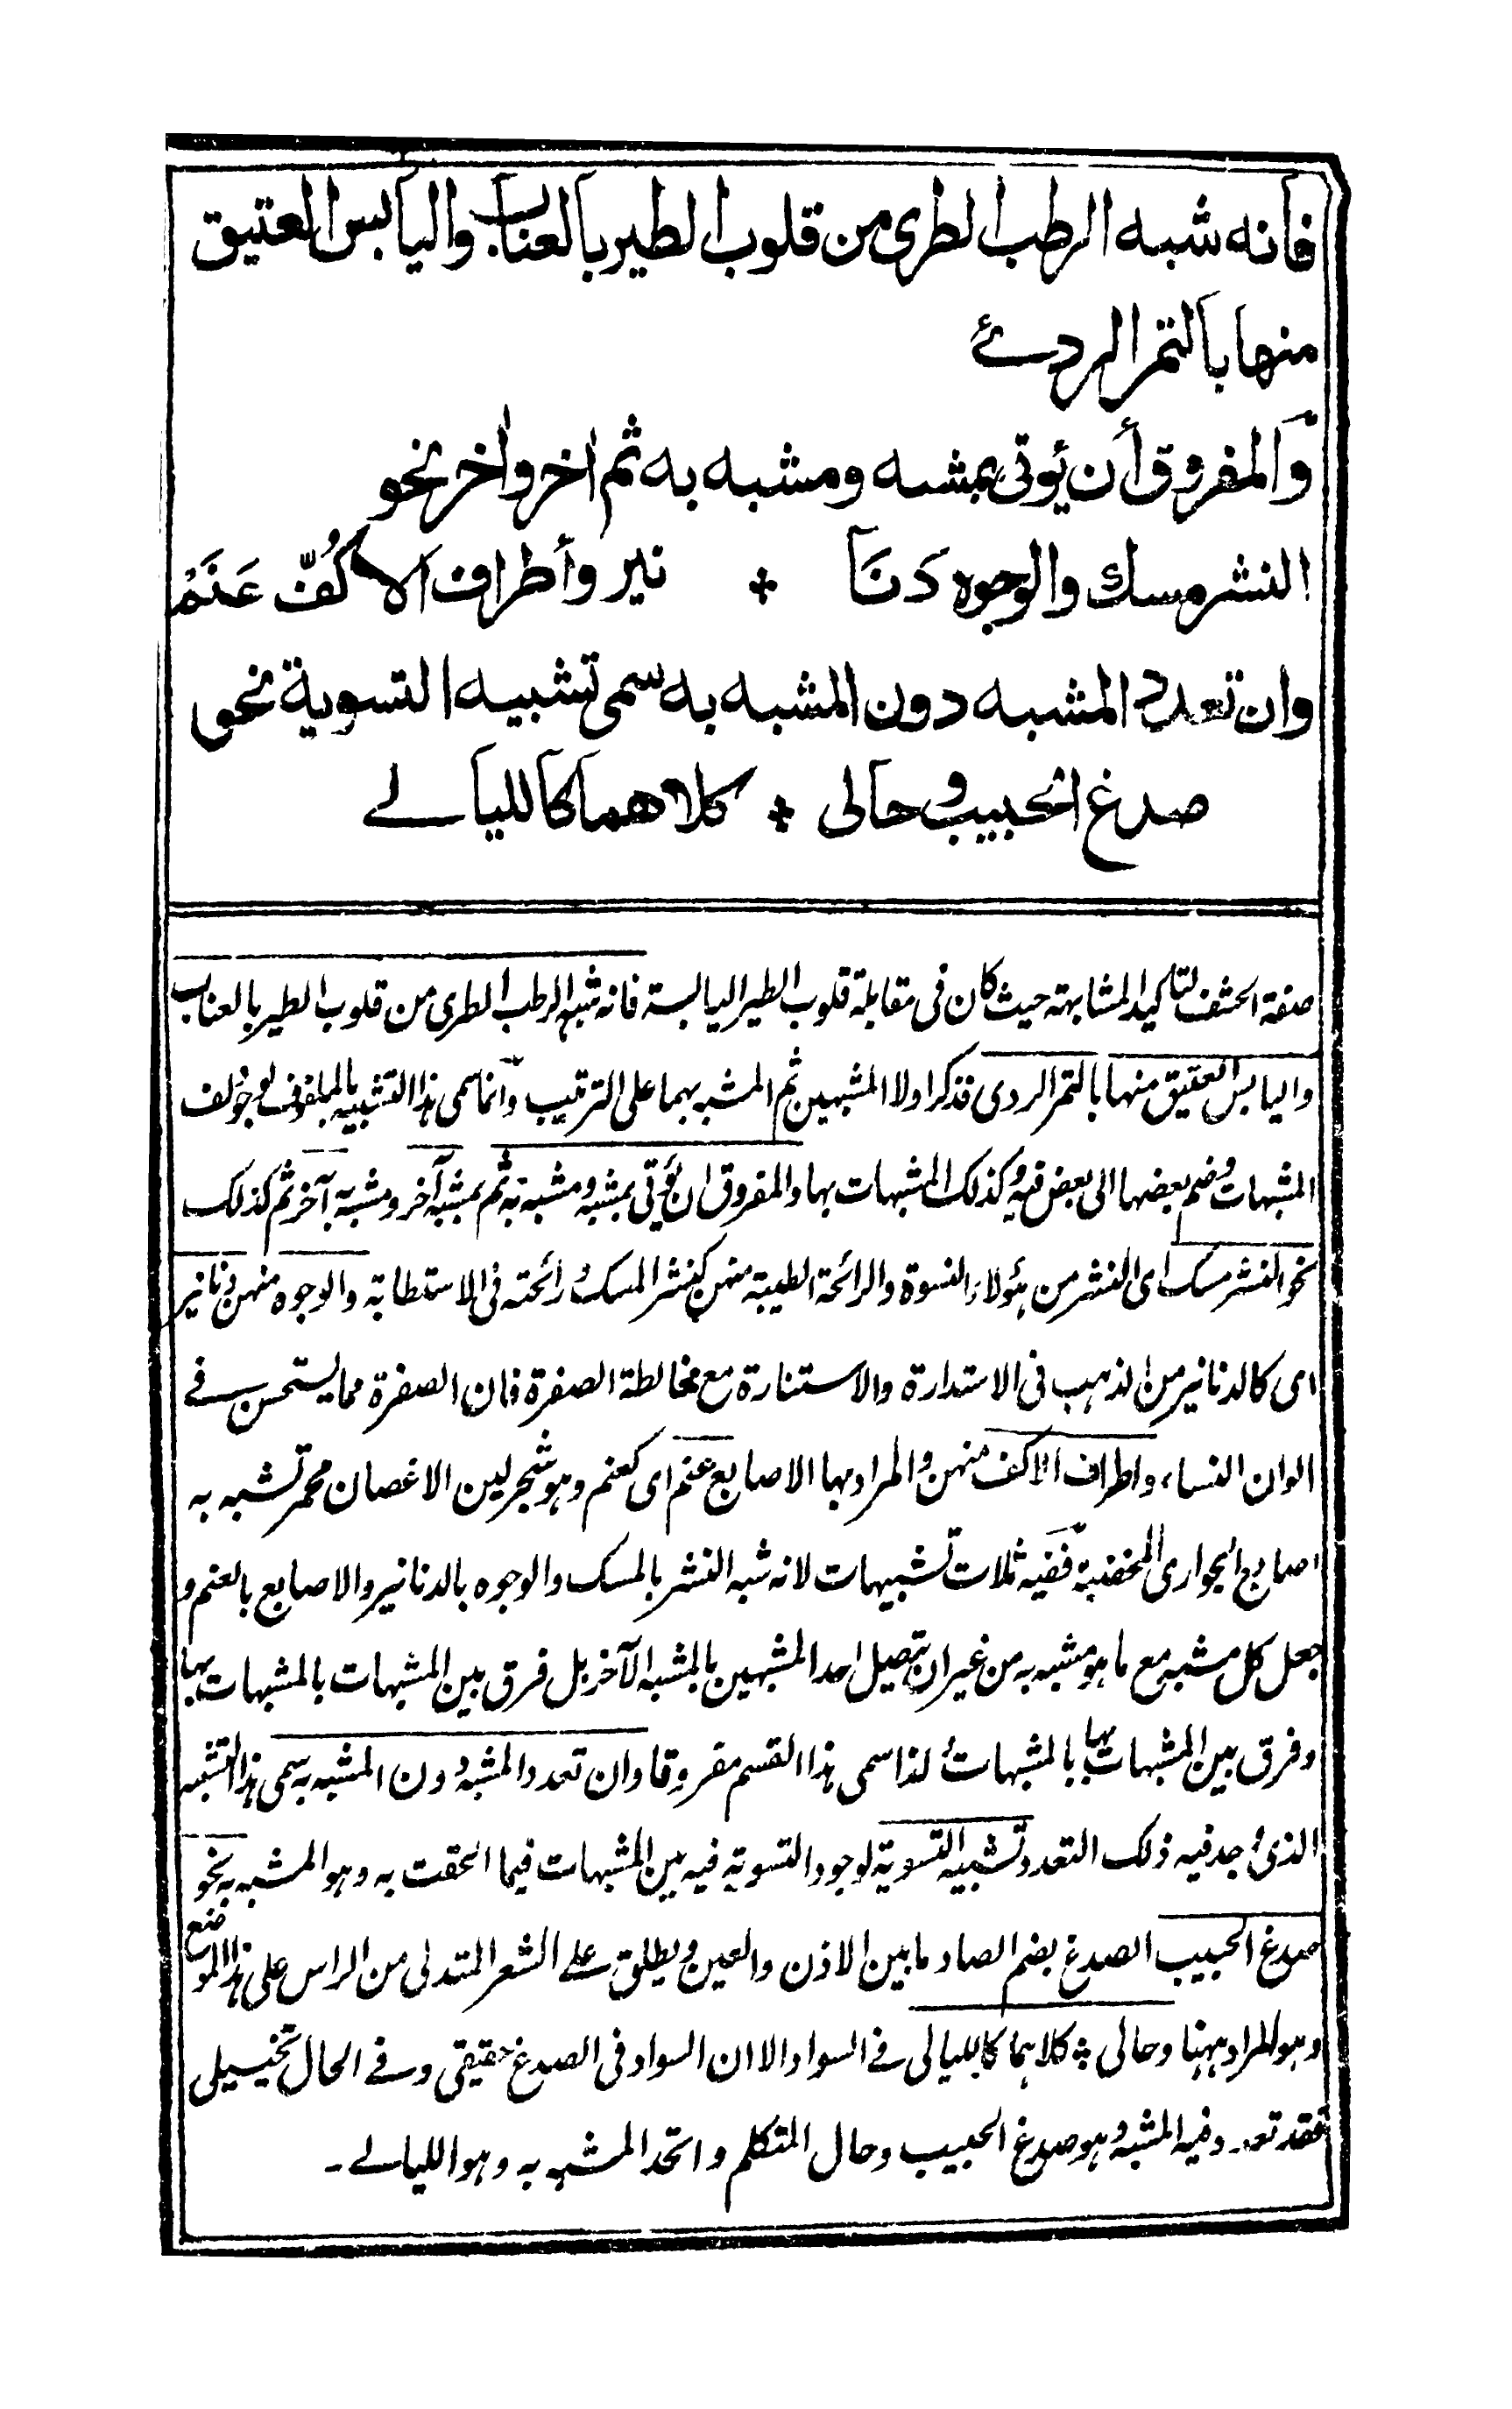 فانه شبه الرطب الطرى من قلوب الطير بالعناب واليابس العتيق
منها بالتمر الردئ
والمفروق أن يؤتى بمشبه ومشبه به ثم اخر واخر نحو
النشر مسك والوجوه دَنَا ٭ نير وأطراف الاكُفّ عَنَمُ
وان تعدد المشبه دون المشبه به سمى تشبيه التسوية نحو
صدغ الحبيب وحالى ٭ كلاهما كالليالے
صفة الحشف لتاكيد المشابهة حيث كان فى مقابلة قلوب الطير اليابسة فانه شبه الرطب الطرى من قلوب الطير بالعناب
واليابس العتيق منها بالتمر الردى فذكر اولا المشبهين ثم المشبه بهما على الترتيب وانما سمى هذا التشبيه بالملفوف لوجود لف
المشبهات وضم بعضها الى بعض فيه وكذلك المشبهات بها والمفروق ان يؤتى بمشبه ومشبه به ثم بمشبه آخر ومشبه به آخر ثم كذلك
نحو النشر مسك اى النشر من هؤلاء النسوة والرائحة الطيبة منهن كنشر المسك ورائحته فى الاستطابة والوجوه منهن دنانير
اى كالدنانير من الذهب فى الاستدارة والاستنارة مع مخالطة الصفرة فان الصفرة مما يستحسن فے
الوان النساء، واطراف الاكف منهن والمراد بها الاصابع عنم اى كعنم وهو شجر لين الاغصان محمر تشبه به
اصابع الجوارى المخضبة ففيه ثلاث تشبيهات لانه شبه النشر بالمسك والوجوه بالدنانير والاصابع بالعنم و
جعل كل مشبه مع ما هو مشبه به من غير ان يتصل احد المشبهين بالمشبه الآخر بل فرق بين المشبهات بالمشبهات بها
وفرق بين المشبهات بها بالمشبهات ولذا سمى هذا القسم مفروقا وان تعدد المشبه دون المشبه به سمى هذا التشبيه
الذى وجد فيه ذلك التعدد تشبيه التسوية لوجود التسوية فيه بين المشبهات فيما الحقت به وهو المشبه به نحو
صدغ الحبيب الصدغ بضم الصاد ما بين الاذن والعين ويطلق علے الشعر المتدلى من الراس على هذا الموضع
وهو المراد ههنا وحالى ٭ كلاهما كالليالى فے السواد الا ان السواد فى الصدغ حقيقى وفے الحال تخييلى
فقد تعدد فيه المشبه وهو صدغ الحبيب وحال المتكلم واتحد المشبه به وهو الليالے۔